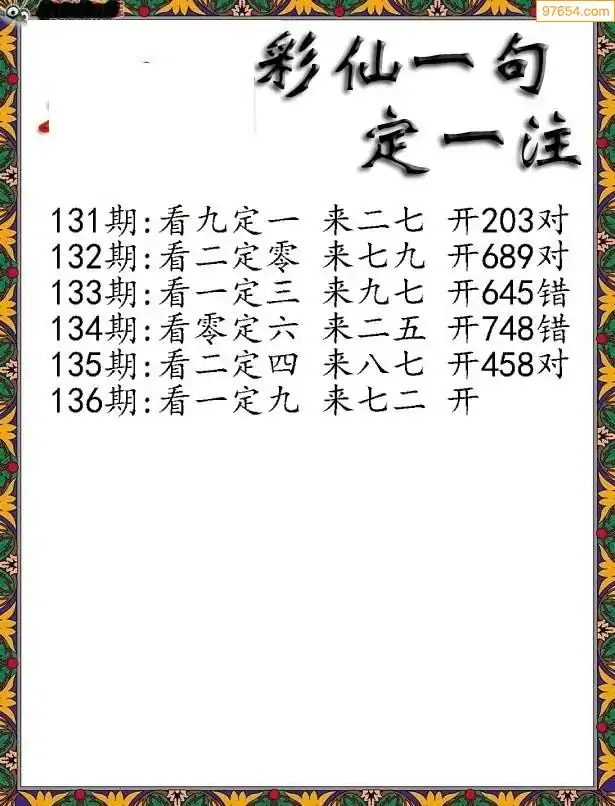 97654.com
彩仙一句
定一注
131期:看九定一 来二七 开203对
132期:看二定零 来七九 开689对
133期:看一定三 来九七 开645错
134期:看零定六 来二五 开748错
135期:看二定四 来八七 开458对
136期:看一定九 来七二 开